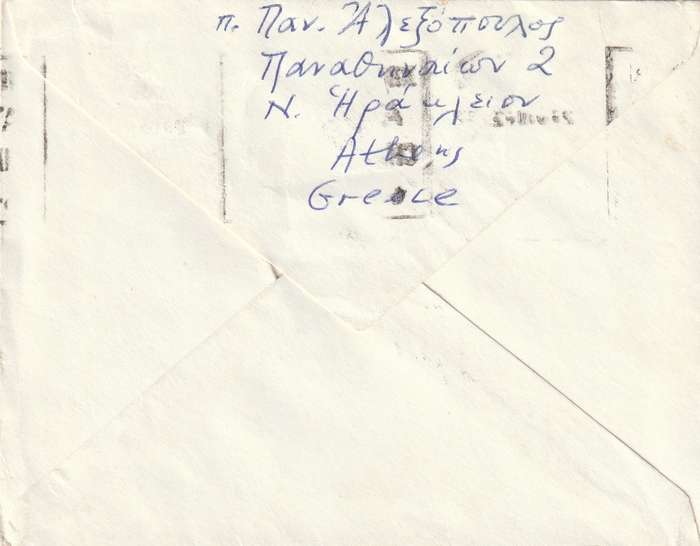 π. Παν. Ἀλεξόπουλος
Παναθηναίων 2
Ν. Ἡράκλειον
Athens
Greece